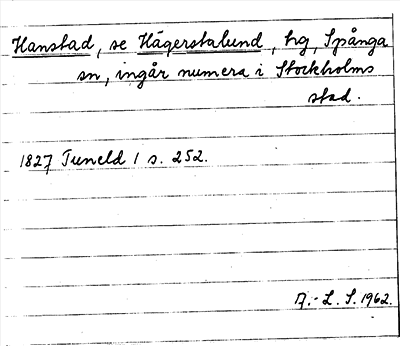 Hanstad, se Hägerstalund, hg, Spånga
sn, ingår numera i Stockholms
stad.
1827 Tuneld I s. 252.
A.-L. S. 1962.